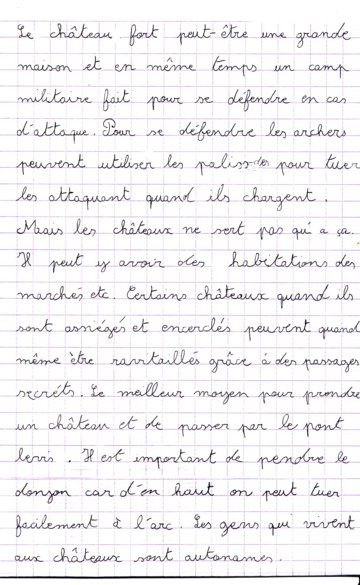 Le château fort peut-être une grande
maison et en même temps un camp
militaire fait pour se défendre en cas
d'attaque. Pour se défendre les archers
peuvent utiliser les palissades pour tuer
les attaquant quand ils chargent.
Maais les châteaux ne sert pas qu'a ça.
Il peut y avoir des habitations des
marchés etc. Certains châteaux quand ils
sont assiégés et encerclés peuvent quand
même être ravitaillés grâce á des passages
secréts. Le meilleur moyen pour prendre
un château et de passer par le pont
levis. Il est important de pendre le
donjon car d'en haut on peut tuer
facilement à l'arc. Les gens qui vivent
aux châteaux sont autonames.